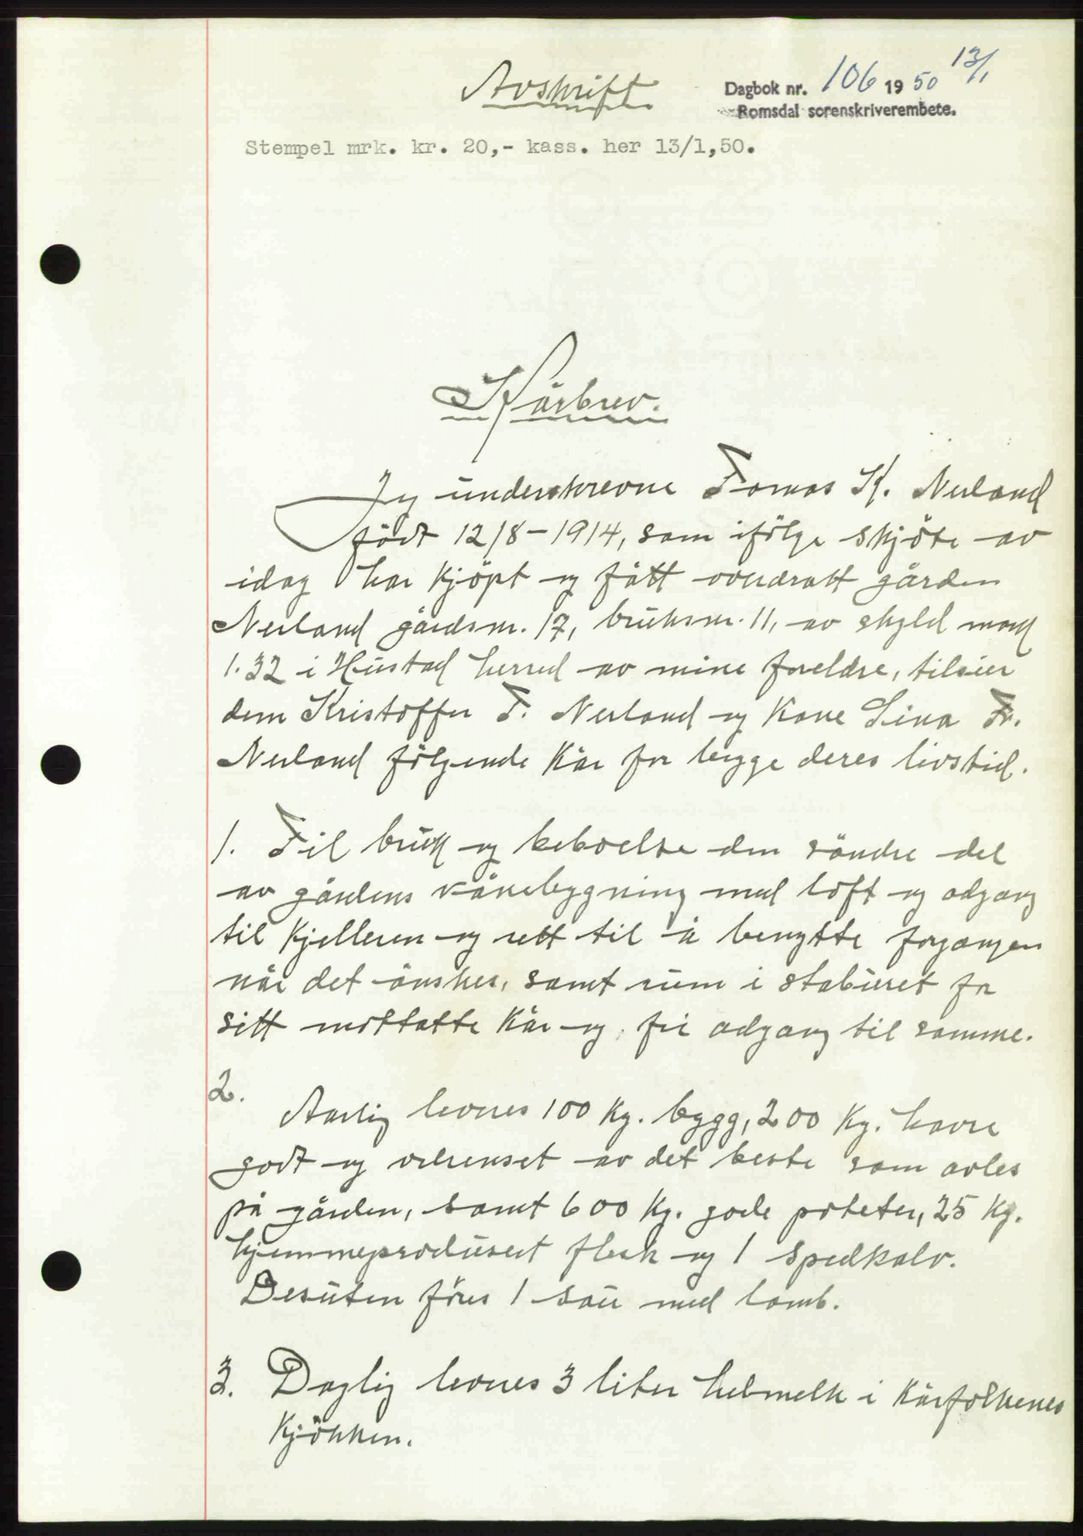 Avskrift
Dagbok nr. 106 1950 13/1
Romsdal sorenskriverembete.
Stempel mrk. kr. 20,- kass. her 13/1,50.
Kårbrev.
Jeg underskrevne Tomas K. Nerland
födt 12/8-1914, som ifölge skjöte av
idag har kjöpt og fått overdratt gården
Nerland gårdsnr. 17, bruksnr. 11, av skyld mark
1.32 i Hustad herred av mine foreldre, tilsier
dem Kristoffer T. Nerland og kone Lina Fr.
Nerland fölgende kår for begge deres livstid.
1. Til bruk og beboelse den söndre del
av gårdens vånebygning med loft og adgang
til kjelleren og rett til å benytte forgangen
når det önskes, samt rum i staburet for
sitt mottatte kår og fri adgang til samme.
2.
Aarlig leveres 100 kg. bygg, 200 kg. havre
godt og velrenset av det beste som avles
på gården, samt 600 kg. gode poteter, 25 kg.
hjemmeprodusert flesk og 1 spedkalv.
Desuten föres 1 sau med lamb.
3. Daglig leveres 3 liter helmelk i kårfolkenes
kjökken.